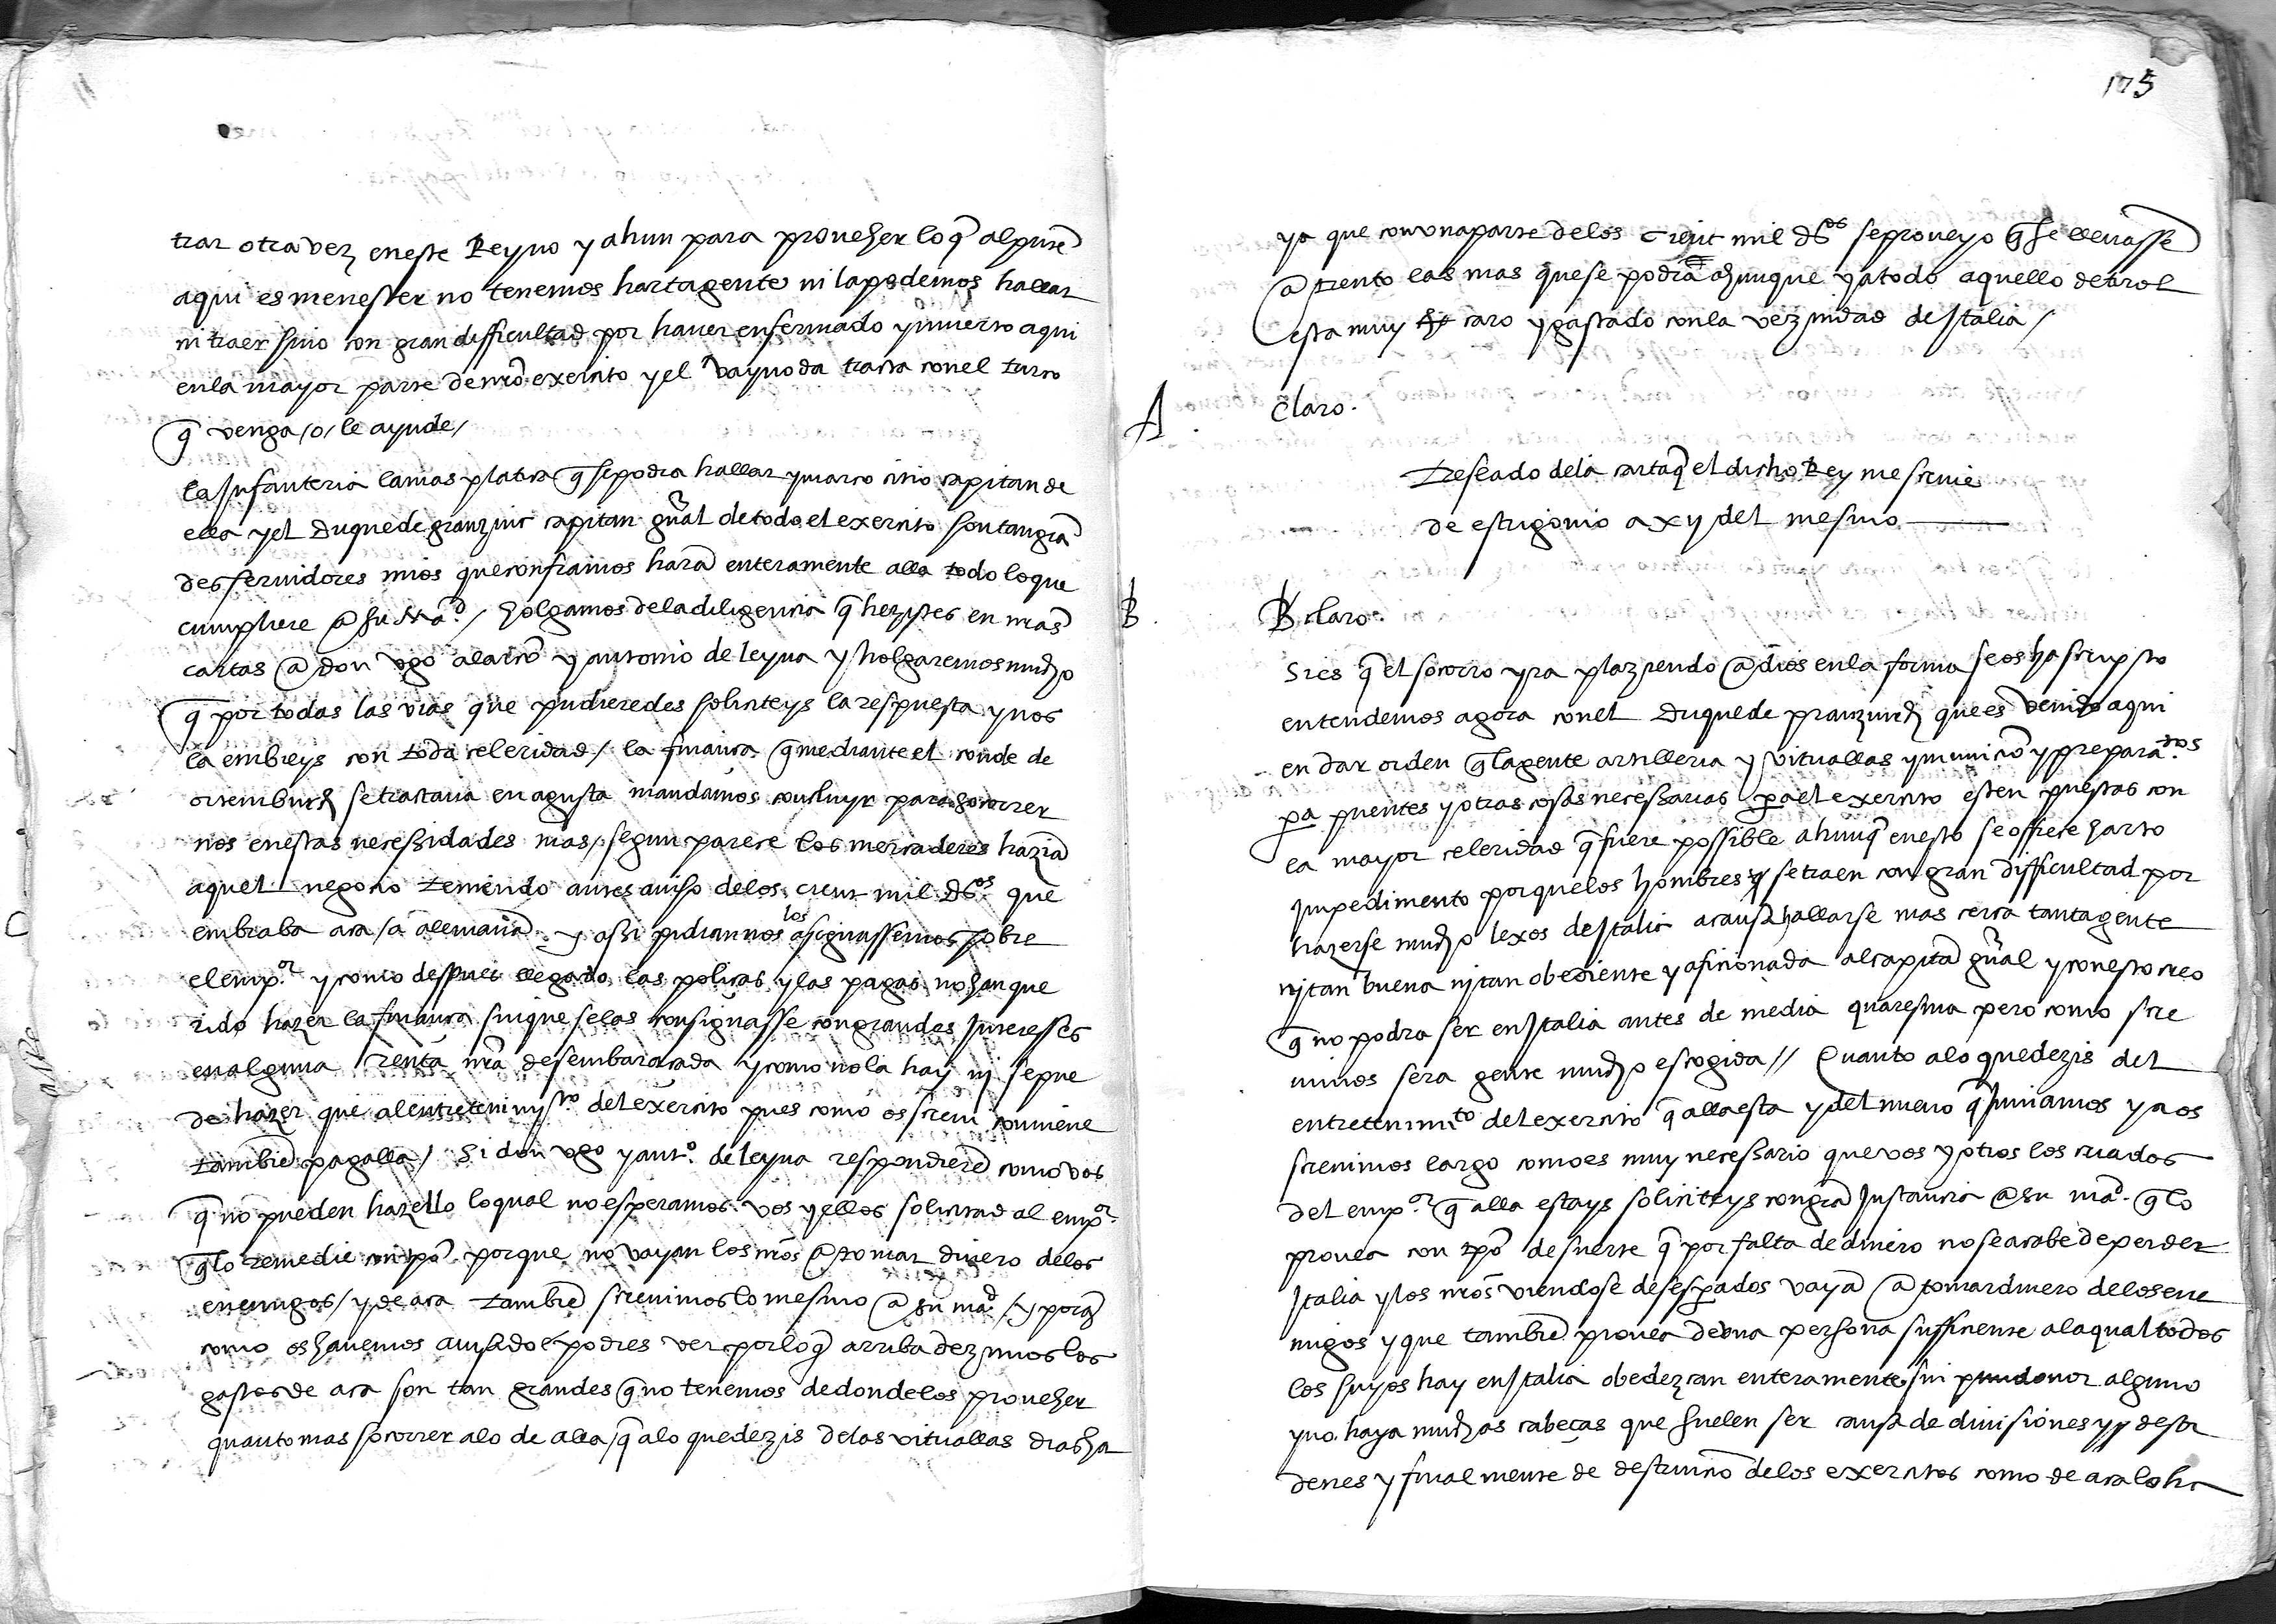 trar otra vez en este Reyno y ahun para proveher lo q̃ al pñte
aqui es menester no tenemos harta gente ni la podemos hallar
ni traer sino con gran difficultad por haver enfermado y muerto aqui
en la mayor parte de nrõ exercito y el vayuoda tracta con el turco
q̃ venga /o/ le ayude /
la Infanteria la mas platica q̃ se podra hallar y marco sitio capitan de
ella y el Duque de granzuic capitan gñal de todo el exercito son tan grã
des servidores mios que confiamos harã enteramente alla todo lo que
cumpliere a su Mad / holgamos de la diligencia q̃ hezistes en nrãs
cartas a don ugo alarcõ y antonio de leyva y holgaremos mucho
q̃ por todas las vias que pudieredes soliciteys la respuesta y nos
la embieys con toda celeridad / la finança q̃ mediante el conde de
ortemburch se tractava en agusta mandamos concluyr para socorrer
nos en estas necessidades mas / segun parece los mercaderes haziã
aquel negocio teniendo antes aviso de los cient mil dos que
embiaba aca /a alemaña y assi pidian nos los asignassemos sobre
el empor y como despues llegado las policas y las pagas no han que
rido hazer la finança sin que se las consignasse con grandes Interesses
en alguna renta nrã desembaraçada y como no la hay ni se pue
de hazer que al entretenimyto del exercito pues como os screvi conviene
tambiẽ pagalla / Si don ugo y anto de leyva respondierẽ como vos
q̃ no pueden hazello lo qual no esperamos vos y ellos solicitad al empor
q̃ lo remedie con tpõ porque no vayan los nrõs a tomar dinero de los
enemigos / y de aca tambiẽ screvimos lo mesmo a su mad / y porq̃
como os havemos avisado e podres ver por lo q̃ arriba dezimos los
gastos de aca son tan grandes q̃ no tenemos de donde los proveher
quanto mas socorrer a lo de alla / q̃ a lo que dezis de las vituallas dias ha
175
ya que con una parte de los cient mil dos se proveyo q̃ se llevassẽ
a trento las mas que se podiã ahunque ya todo aquello de tirol
esta muy caro y gastado con la vezindad de Italia /
A
Claro.
Treslado de la carta q̃ el dicho Rey me scrive
de estrigonio a xy del mesmo
B
B claro.
Sres q̃ el socorro yra plaziendo a dios en la forma se os ha scripto
entendemos agora con el Duque de pranzuich que es venido aqui
en dar orden q̃ la gente artilleria y vituallas y municiõ y preparados
pa puentes y otras cosas necessarias pa el exercito esten puestas con
la mayor celeridad q̃ fuere possible ahunq̃ en esto se offrece harto
Impedimento porque los hombres y se traen con gran difficultad por
hazerse mucho lexos de Italia a causa hallarse mas cerca tanta gente
ny tan buena ny tan obediente y aficionada al capitã gñal y con esto creo
q̃ no podra ser en Italia antes de media quaresma pero como scre
vimos sera gente mucho escogida // Quanto a lo que dezis del
entretenimto del exercito q̃ alla esta y del nuevo q̃ Imviamos ya os
screvimos largo como es muy necessario que vos y otros los criados
del empor q̃ alla estays soliciteys con grã Instancia a su mad q̃ lo
provea con tpõ de suerte q̃ por falta de dinero no se acabe de perder
Italia y los nrõs viendose desesperados vayã a tomar dinero de los ene
migos y que tambiẽ provea de una persona sufficiente a la qual todos
los suyos hay en Italia obedezcan enteramente sin pundonor alguno
y no haya muchas cabeças que suelen ser causa de divisiones y desor
denes y finalmente de destrucciõ de los exercitos como de aca lo he